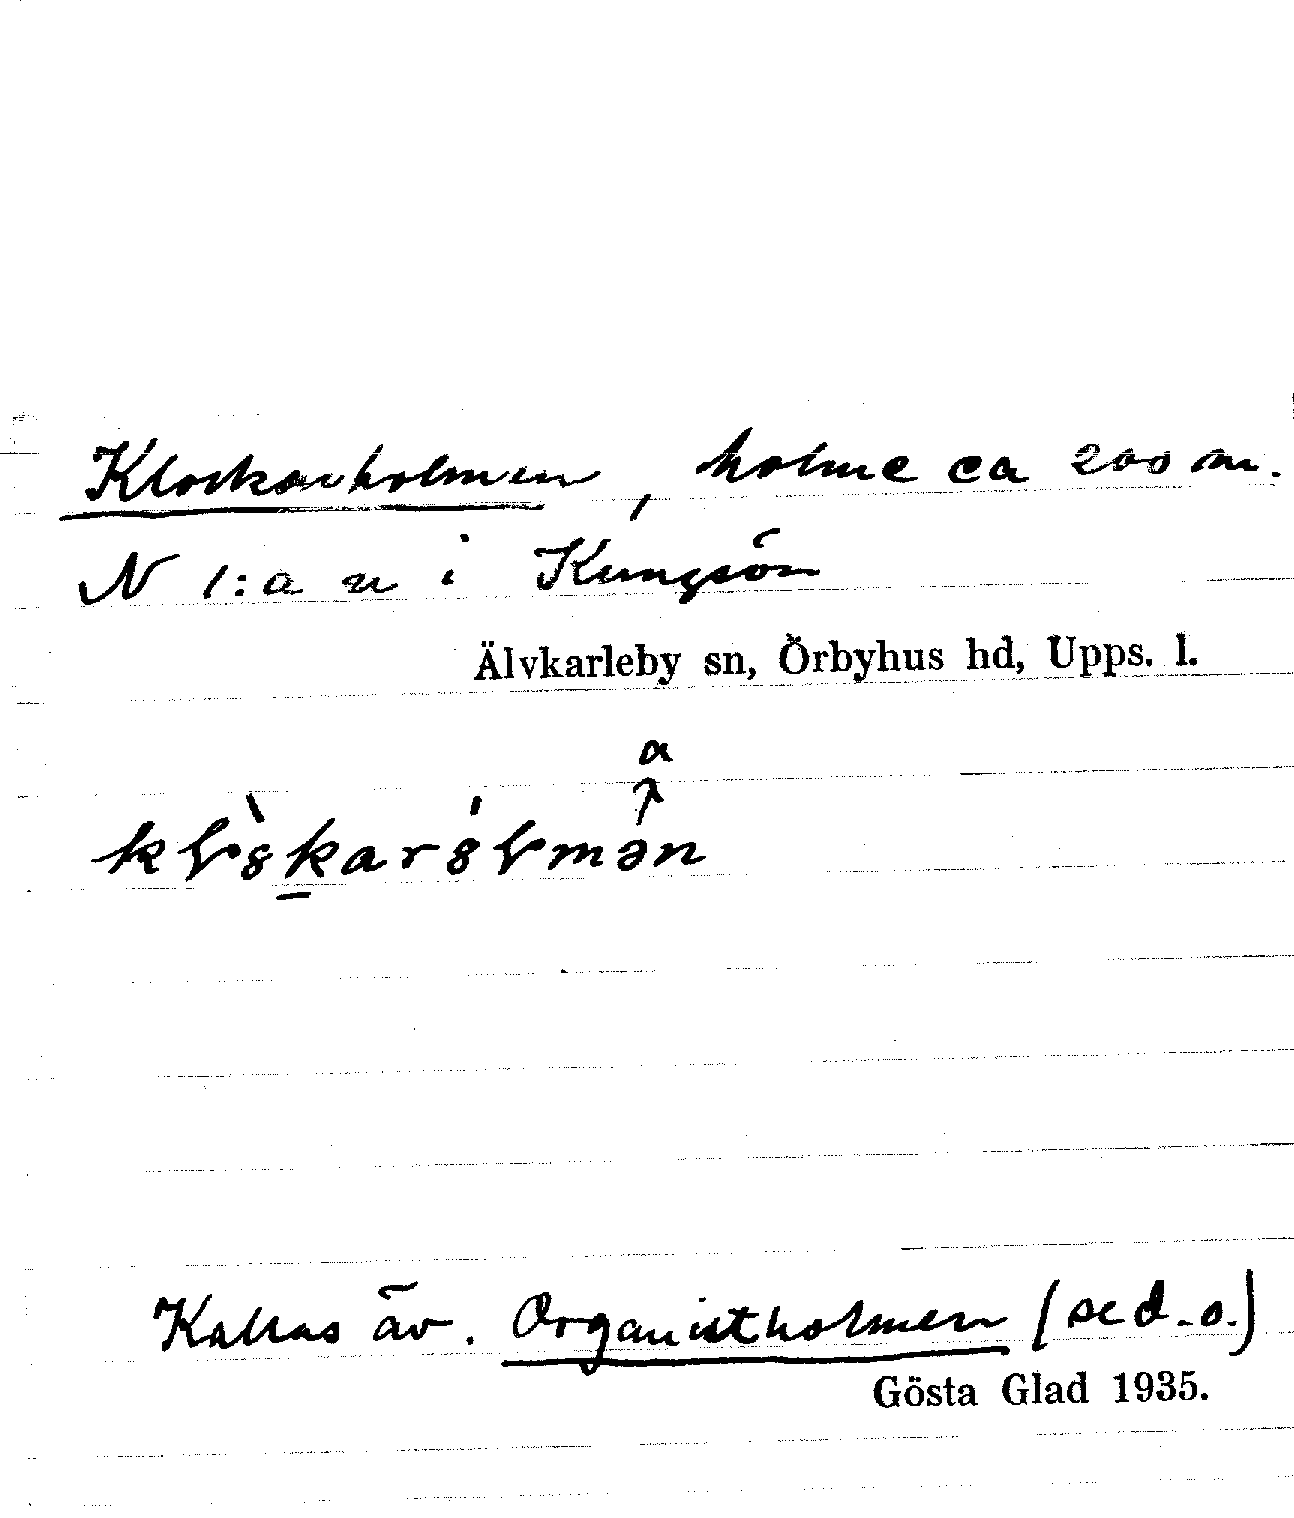 Klockarholmen, holme ca 200 m.
N l:a n i Kungsön
Älvkarleby sn, Örbyhus hd, Upps. l.
a
Kallas äv. Organistholmen (se d. o.)
Gösta Glad 1935.